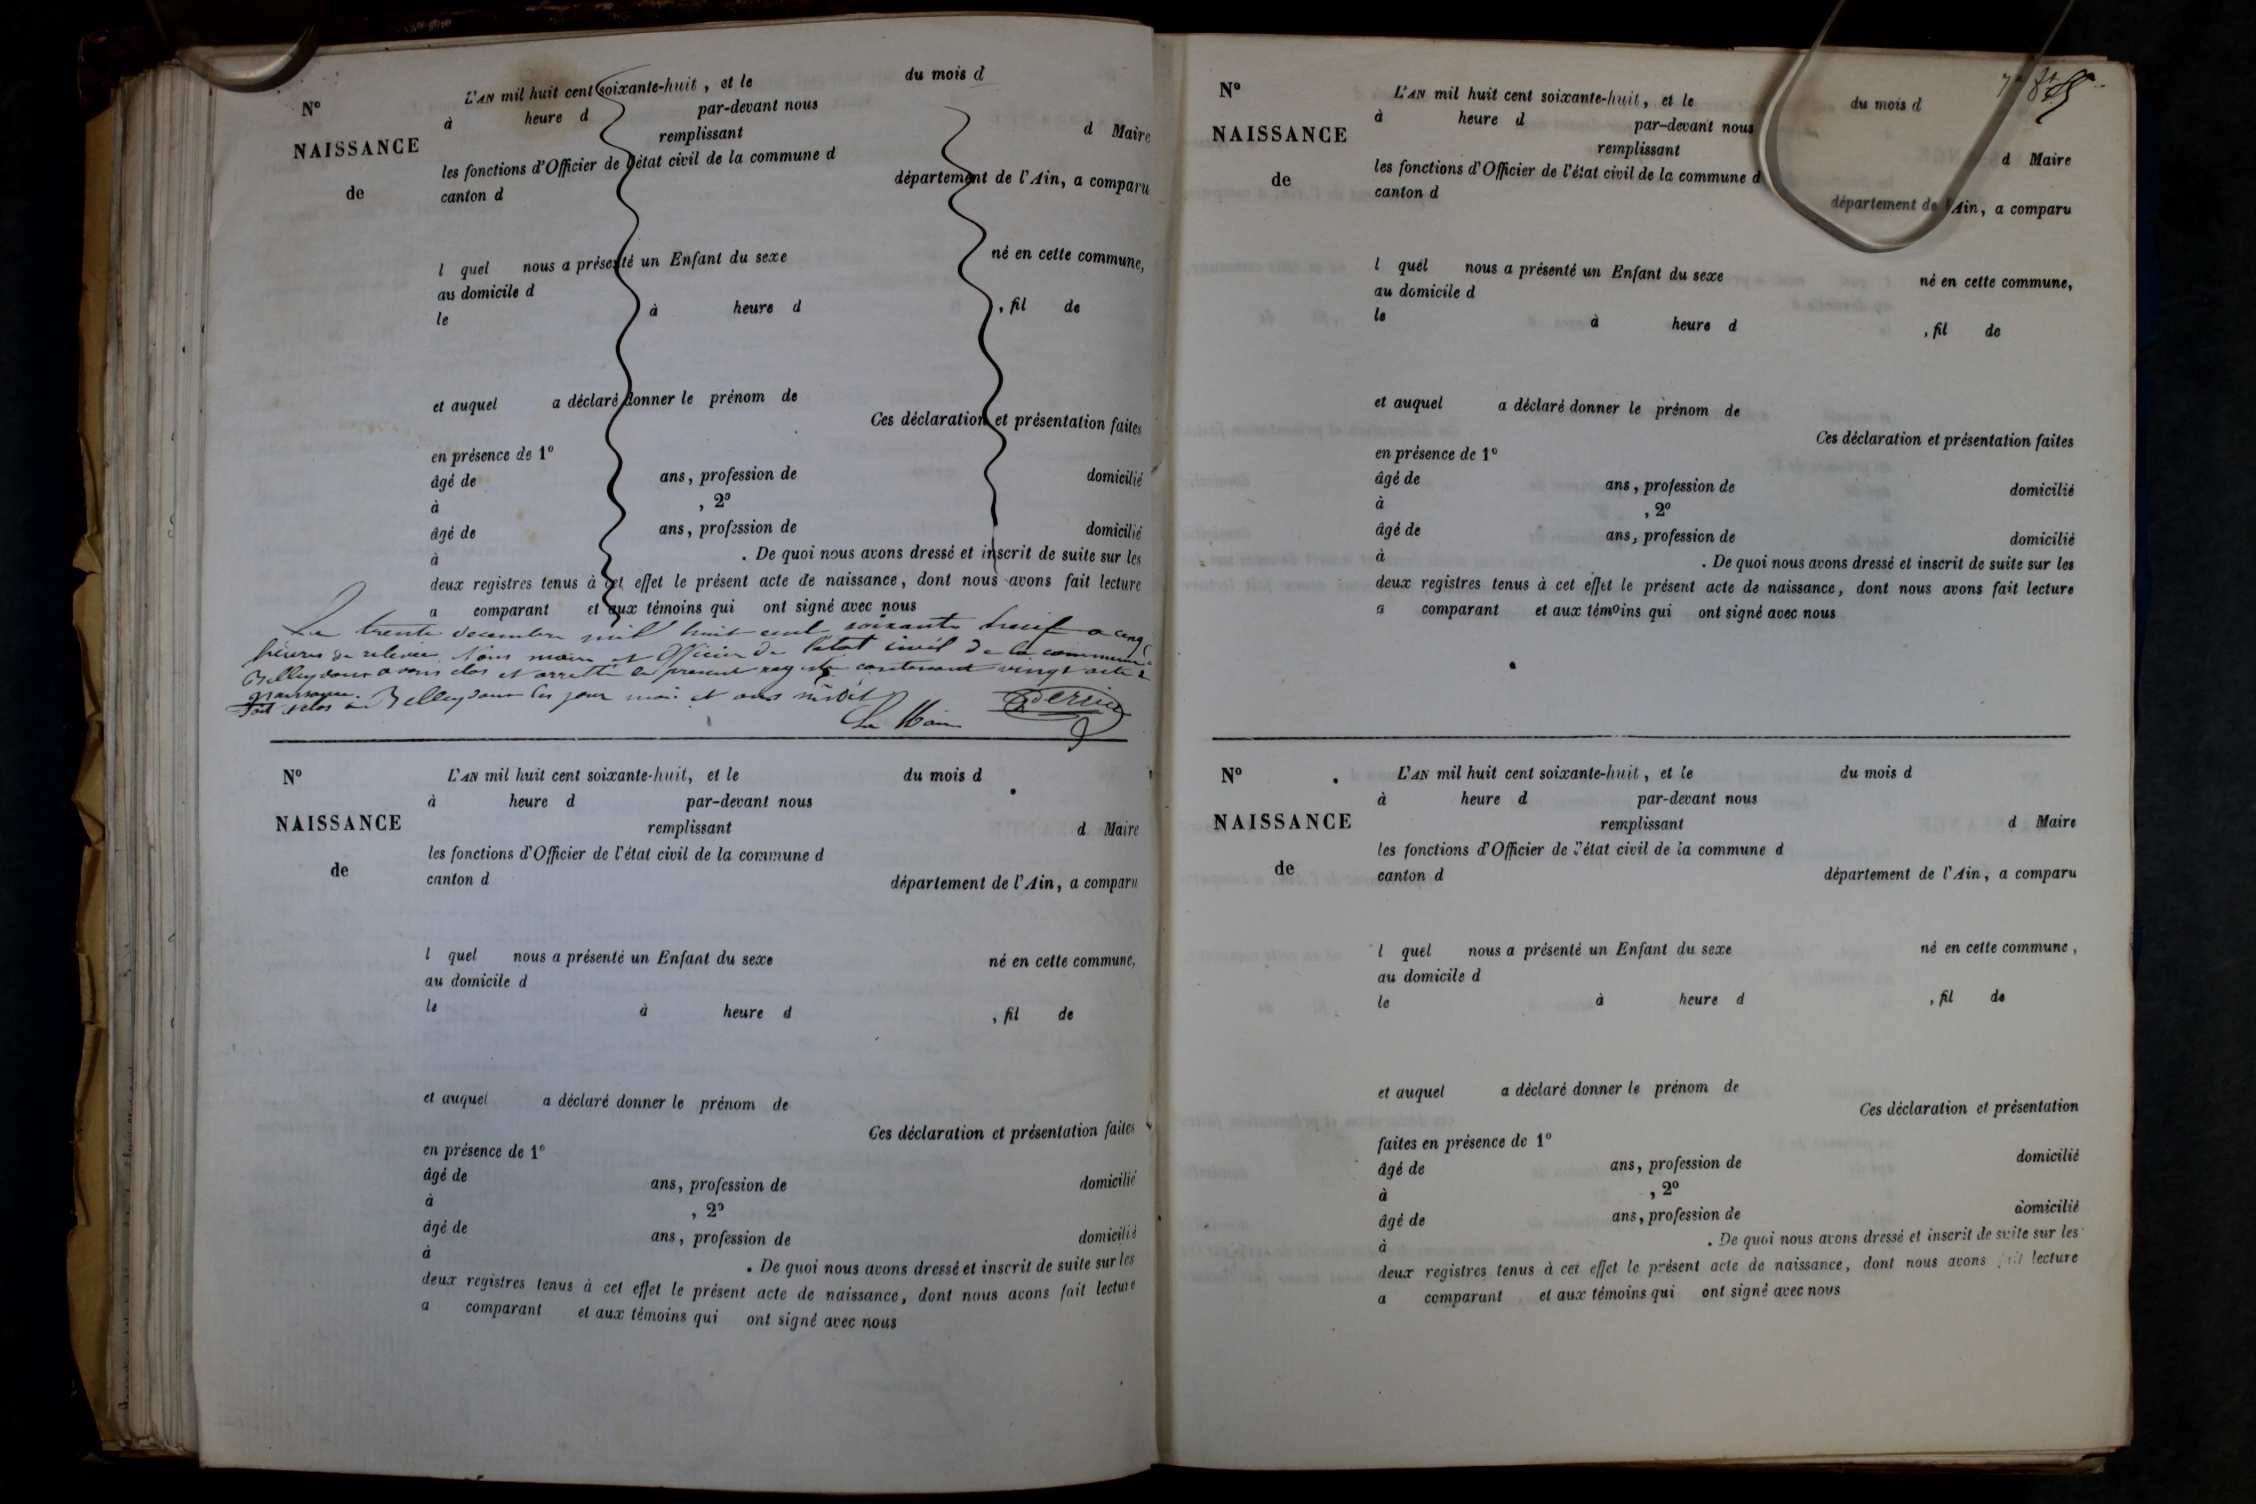 Nº
NAISSANCE
de
L'AN mil huit cent soixante-huit, et le du mois d
à heure d par-devant nous
remplissant d Maire
les fonctions d'Officier de l'état civil de la commune d
canton d département de l'Ain, a comparu
l quel nous a présenté un Enfant du sexe né en cette commune,
au domicile d
le à heure d , fil de
et auquel a déclaré donner le prénom de
Ces déclaration et présentation faites
en présence de 1º
âgé de ans, profession de domicilié
à , 2º
âgé de ans, profession de domicilié
à . De quoi nous avons dressé et inscrit de suite sur les
deux registres tenus à cet effet le présent acte de naissance, dont nous avons fait lecture
a comparant et aux témoins qui ont signé avec nous
Le trente decembre mil huit cent soixante huit a cinq
heures de relevée, Nous maire et Officier de l'état civil de la commune
Belleydoux avons clos et arretté le present registre contenant vingt acte de
naissance.
fait et clos à Belleydoux les jour mois et ans susdit
Le Maire
Nº
NAISSANCE
de
L'AN mil huit cent soixante-huit, et le du mois d
à heure d par-devant nous
remplissant d Maire
les fonctions d'Officier de l'état civil de la commune d
canton d département de l'Ain, a comparu
l quel nous a présenté un Enfant du sexe né en cette commune,
au domicile d
le à heure d , fil de
et auquel a déclaré donner le prénom de
Ces déclaration et présentation faites
en présence de 1º
âgé de ans, profession de domicilié
à , 2º
âgé de ans, profession de domicilié
à . De quoi nous avons dressé et inscrit de suite sur les
deux registres tenus à cet effet le présent acte de naissance, dont nous avons fait lecture
a comparant et aux témoins qui ont signé avec nous
Nº
NAISSANCE
de
L'AN mil huit cent soixante-huit, et le du mois d
à heure d par-devant nous
remplissant d Maire
les fonctions d'Officier de l'état civil de la commune d
canton d département de l'Ain, a comparu
l quel nous a présenté un Enfant du sexe né en cette commune,
au domicile d
le à heure d , fil de
et auquel a déclaré donner le prénom de
Ces déclaration et présentation faites
en présence de 1º
âgé de ans, profession de domicilié
à , 2º
âgé de ans, profession de domicilié
à . De quoi nous avons dressé et inscrit de suite sur les
deux registres tenus à cet effet le présent acte de naissance, dont nous avons fait lecture
a comparant et aux témoins qui ont signé avec nous
Nº
NAISSANCE
de
L'AN mil huit cent soixante-huit, et le du mois d
à heure d par-devant nous
remplissant d Maire
les fonctions d'Officier de l'état civil de la commune d
canton d département de l'Ain, a comparu
l quel nous a présenté un Enfant du sexe né en cette commune,
au domicile d
le à heure d , fil de
et auquel a déclaré donner le prénom de
Ces déclaration et présentation
faites en présence de 1º
âgé de ans, profession de domicilié
à , 2º
âgé de ans, profession de domicilié
à . De quoi nous avons dressé et inscrit de suite sur les
deux registres tenus à cet effet le présent acte de naissance, dont nous avons fait lecture
a comparant et aux témoins qui ont signé avec nous